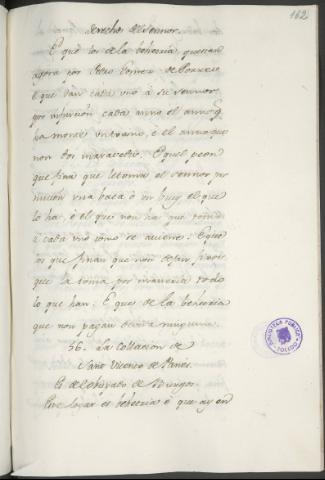 162
derechos del Sennor.
E que los de la behetria que son
agora por Pero Gomez de Porres
e que dan cada uno à su sennor
por infurcion cada anno el anno q
ha moral un tocino, è el anno que
non dos maravedis. E quel peon
que fina que le toma el sennor por
nuncion una baca ò un buey el que
lo ha, è el que non ha que toma
à cada uno como se aviene. E que
os que finan que non dejan fijos
que la toma por maneria todo
lo que han. E que de la behetria
que non pagan devisa ninguna.
56. La Collacion de
Sant Vicente de Panes.
Es del Obispado de Burgos.
Este logar es behetria è que ay en
BIBLIOTECA PUBLICA
TOLEDO